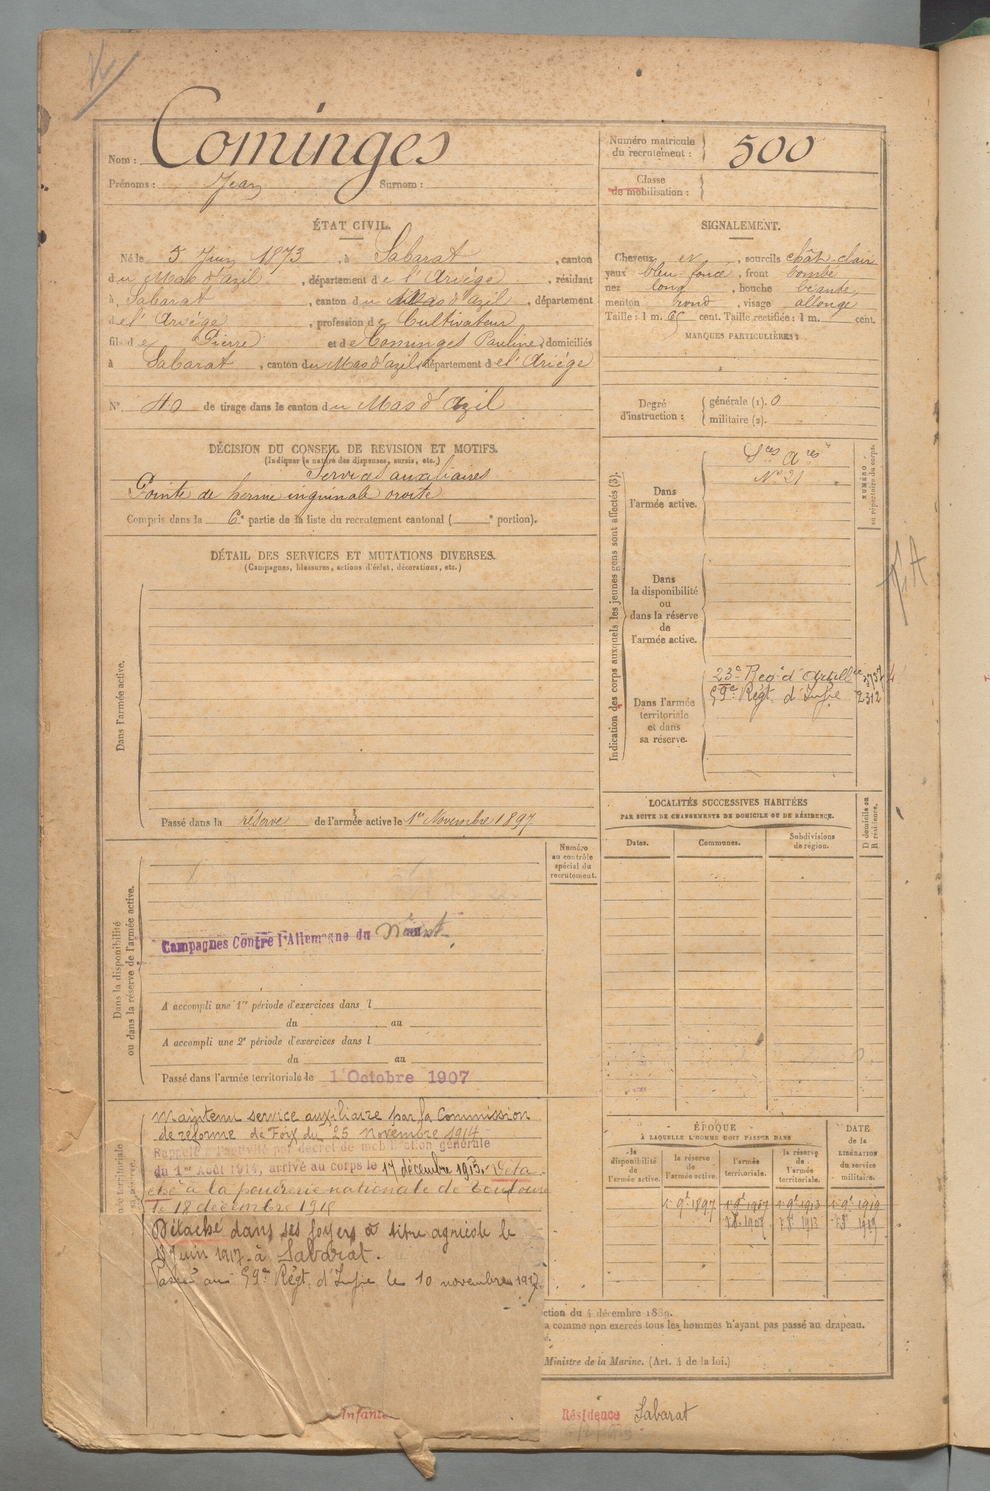 Nom : Cominges
Prénoms : Jean Surnom :
Numéro matricule du recrutement : 500
Classe de mobilisation :
ÉTAT CIVIL.
Né le 5 Juin 1873, à Sabarat, canton
du Mas d'azil, département de l'Ariège, résidant
à Sabarat, canton du Mas d'azil, département
de l'Ariège, profession de Cultivateur
fils de Pierre et de Cominges Pauline, domiciliés
à Sabarat, canton du Mas d'azil, département de l'Ariège
N° 40 de tirage dans le canton du Mas d'azil
SIGNALEMENT.
Cheveux et, sourcils chât-clair
yeux bleu foncé, front bombé
nez long, bouche béante
menton rond, visage allongé
Taille : 1 m. 65 cent. Taille rectifiée : 1 m. cent.
MARQUES PARTICULIÈRES :
Degré d'instruction : générale (1). 0
militaire (2).
DÉCISION DU CONSEIL DE REVISION ET MOTIFS.
(Indiquer la nature des dispenses, sursis, etc.)
Services auxiliaires
Pointe de hernie inguinale droite
Compris dans la 6e partie de la liste du recrutement cantonal ( e portion).
DÉTAIL DES SERVICES ET MUTATIONS DIVERSES.
(Campagnes, blessures, actions d'éclat, décorations, etc.)
Dans l'armée active.
Passé dans la réserve de l'armée active le 1er Novembre 1897
Indication des corps auxquels les jeunes gens sont affectés (3).
NUMÉRO au répertoire du corps.
Dans l'armée active.
Sces Ares
N° 21
Dans la disponibilité ou dans la réserve de l'armée active.
Dans l'armée territoriale et dans sa réserve.
23e Reg. d'Artillie
59e Régt. d'Infie 2312
LOCALITÉS SUCCESSIVES HABITÉES
PAR SUITE DE CHANGEMENTS DE DOMICILE OU DE RÉSIDENCE.
D domicile ou R résidence.
Dates. Communes. Subdivisions de région.
Dans la disponibilité ou dans la réserve de l'armée active.
Numéro au contrôle spécial du recrutement.
Campagnes Contre l'Allemagne du Néant
A accompli une 1re période d'exercices dans l
du au
A accompli une 2e période d'exercices dans l
du au
Passé dans l'armée territoriale le 1 Octobre 1907
Maintenu service auxiliaire par la Commission
de réforme de Foix du 25 Novembre 1914
Rappelé à l'activité par décret de mobilisation générale
du 1er Août 1914, arrivé au corps le 17 décembre 1915. Déta
ché à la poudrerie nationale de Toulouse
le 18 décembre 1915
Détaché dans ses foyers à titre agricole le
Juin 1917 à Sabarat.
Passé au 59e Régt. d'Infie le 10 novembre 1917
Infant
ÉPOQUE
À LAQUELLE L'HOMME DOIT PASSER DANS
DATE de la LIBÉRATION du service militaire.
la disponibilité de l'armée active. la réserve de l'armée active. l'armée territoriale. la réserve de l'armée territoriale.
1 9e 1897 1 9e 1907 1 9e 1913 1 9e 1919
ction du 4 décembre 1889.
a comme non exercés tous les hommes n'ayant pas passé au drapeau.
Ministre de la Marine. (Art. 4 de la loi.)
Résidence Sabarat